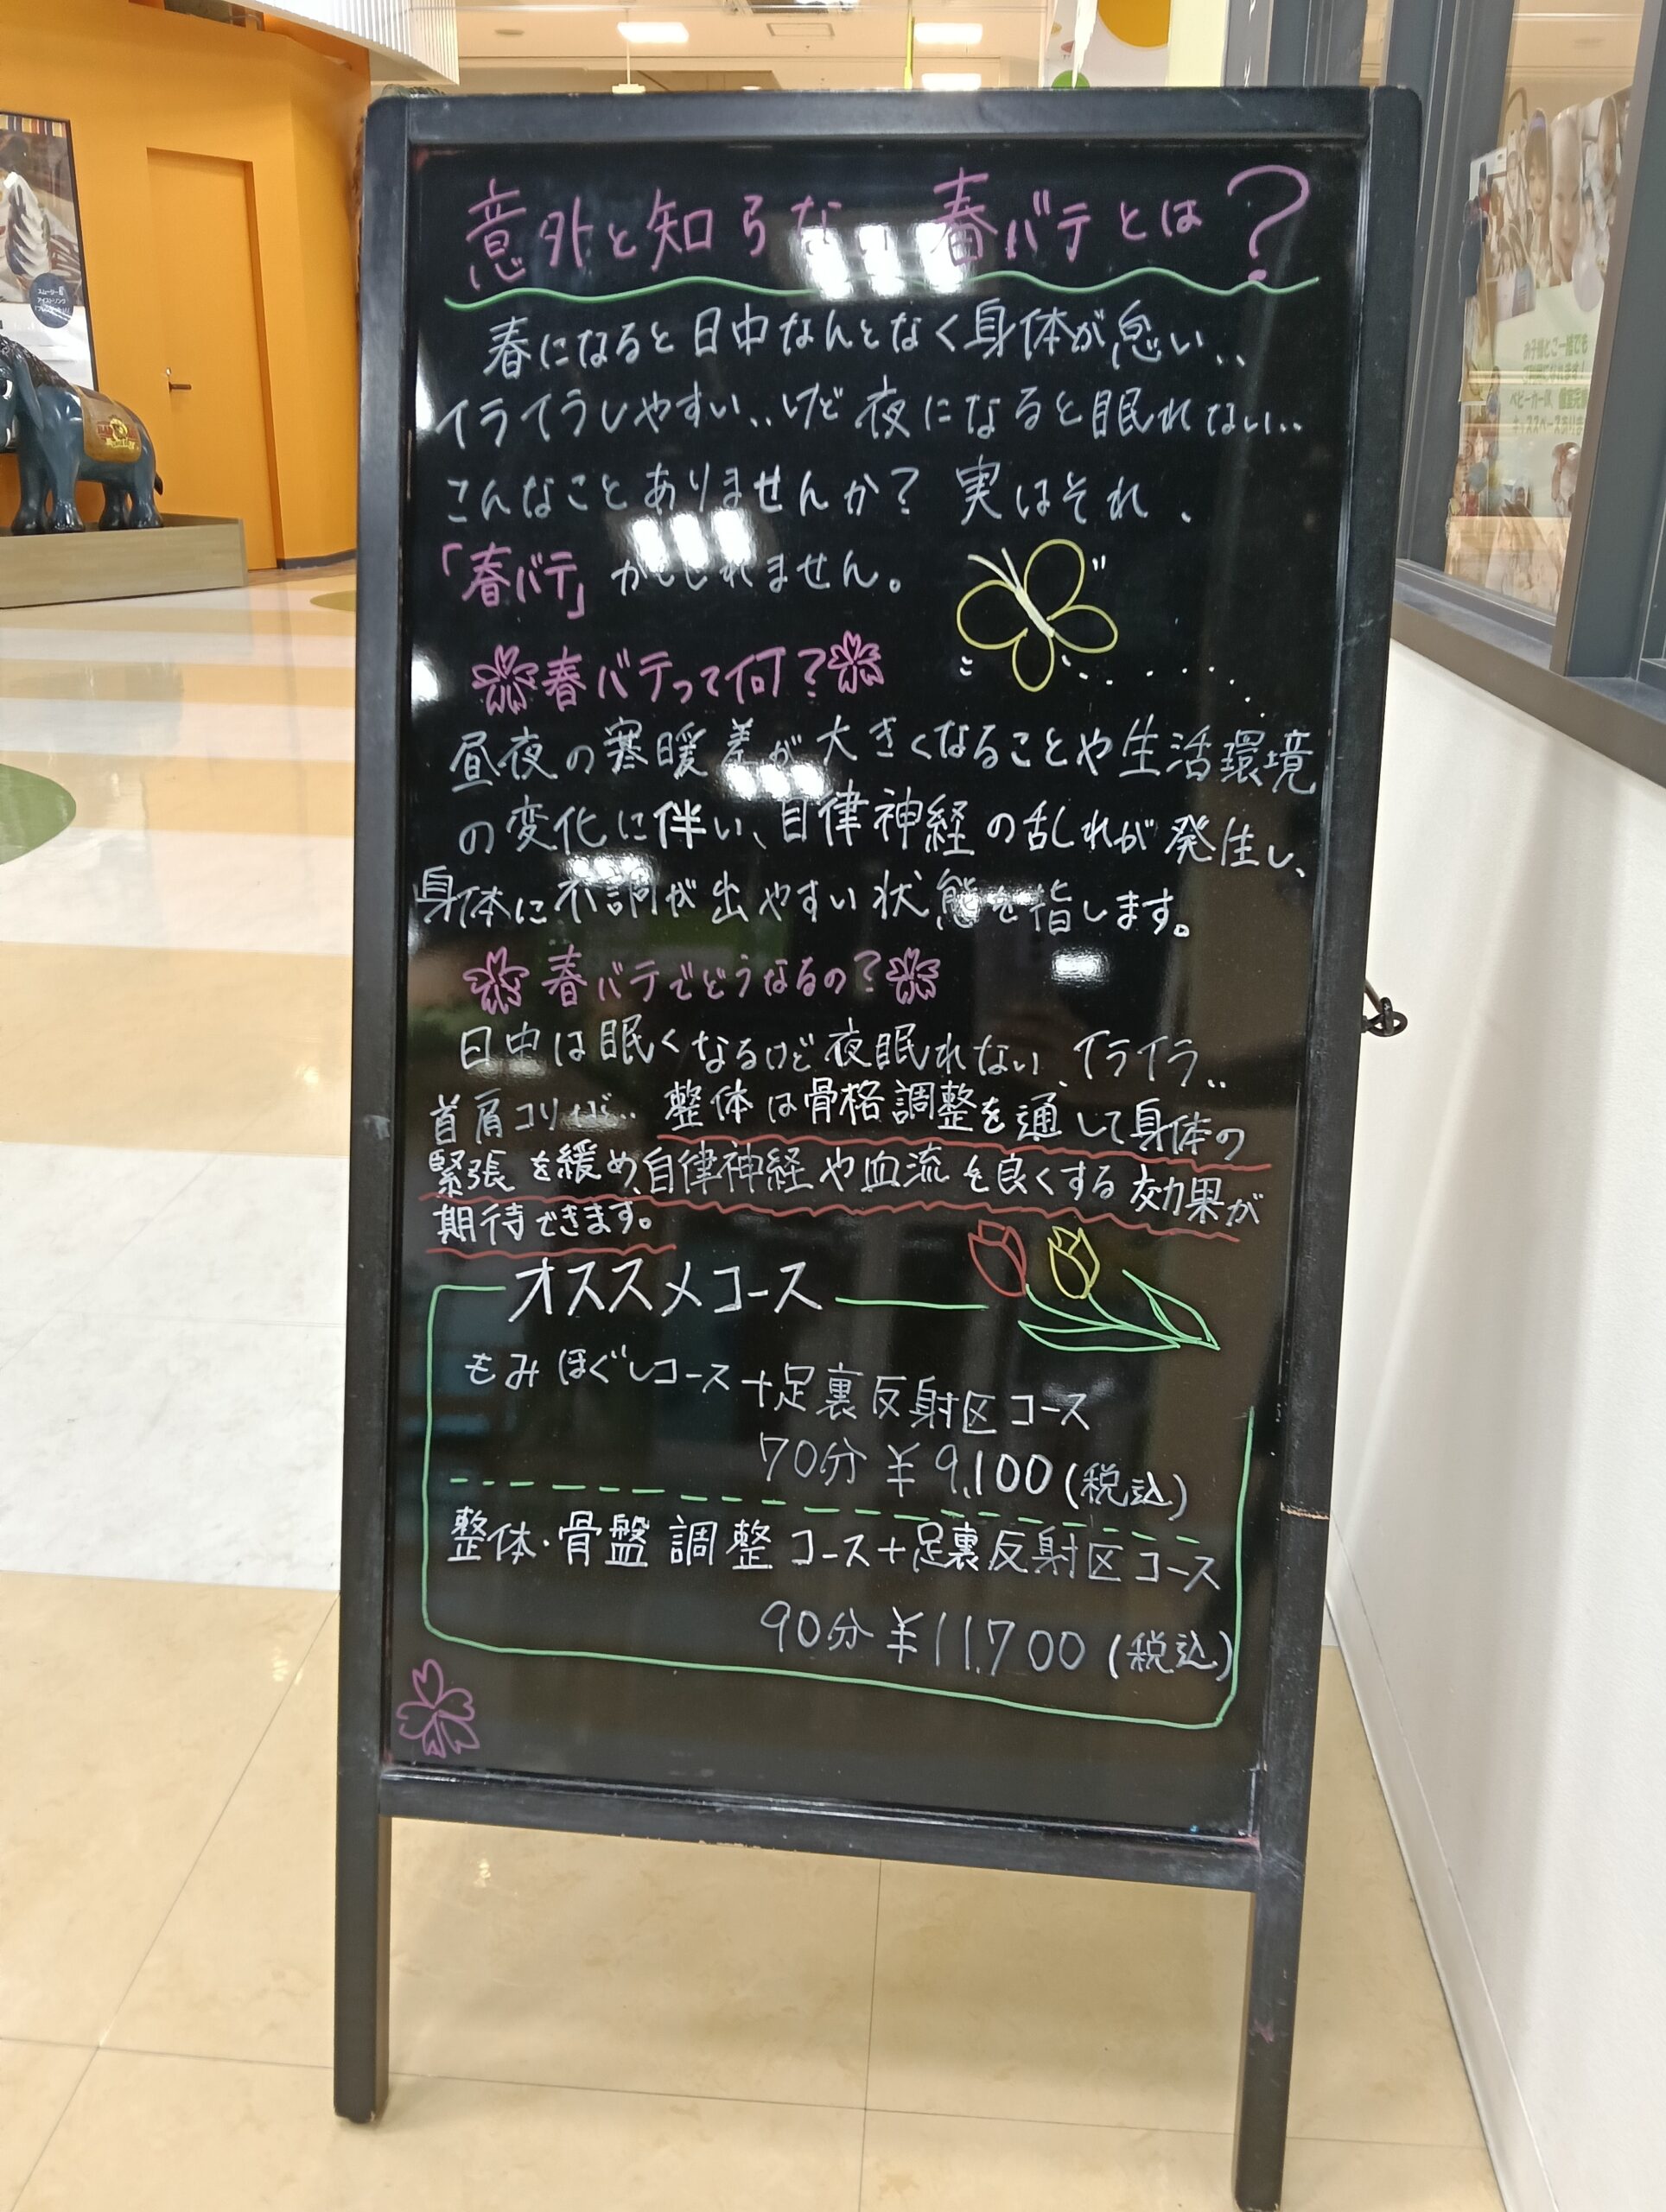 意外と知らない春バテとは?
春になると日中なんとなく身体が怠い..
イライラしやすい..けど夜になると眠れない..
こんなことありませんか?実はそれ、
「春バテ」かもしれません。
春バテって何?
昼夜の寒暖差が大きくなることや生活環境
の変化に伴い、自律神経の乱れが発生し、
身体に不調が出やすい状態を指します。
春バテでどうなるの?
日中は眠くなるけど夜眠れない、イライラ..
首肩コリ
整体は骨格調整を通して身体の
緊張を緩め、自律神経や血流を良くする効果が
期待できます。
オススメコース
もみほぐしコース+足裏反射区コース
70分¥9,100(税込)
整体・骨盤調整コース+足裏反射区コース
90分¥11,700(税込)